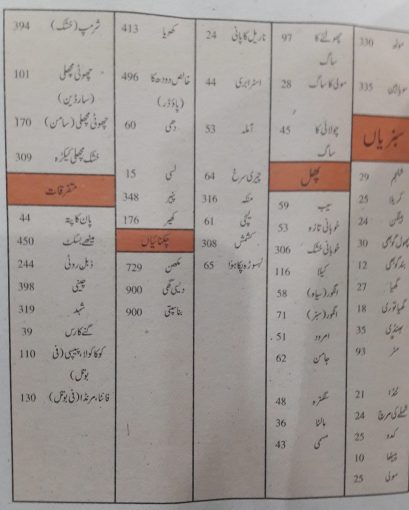 موٹھ 330
سویابین 335
سبزیاں
شلجم 29
کریلا 25
بینگن 24
پھول گوبھی 30
بند گوبھی 12
گھیا 27
گھیا توری 18
بھنڈی 35
مٹر 93
ٹنڈا 21
شملے کی مرچ 24
کدو 25
پیٹھا 10
مولی 25
چولئے کا 97
ساگ
مولی کا ساگ 28
چولائی کا 45
ساگ
پھل
سیب 59
خوبانی تازہ 53
خوبانی خشک 306
کیلا 116
انگور (سیاہ) 58
انگور (سبز) 71
امرود 51
جامن 62
سنگترہ 48
مالٹا 36
مسمی 43
ناریل کا پانی 24
اسٹرابری 44
آملہ 53
چیری سرخ 64
منقہ 316
لیچی 61
کشمش 308
لسوڑہ پکا ہوا 65
کھویا 413
خالص دودھ کا 496
(پاؤڈر)
دہی 60
لسی 15
پنیر 348
کھیر 176
چکنائیاں
مکھن 729
دیسی گھی 900
بناسپتی 900
شرمپ (خشک) 394
چھوٹی مچھلی 101
(سارڈین)
چھوٹی مچھلی (سامن) 170
خشک مچھلی کیکڑہ 309
متفرقات
پان کا پتہ 44
میٹھے بسکٹ 450
ڈبل روٹی 244
چینی 398
شہد 319
گنے کا رس 39
کوکا کولا، پیپسی (فی 110
بوتل)
فانٹا، مرنڈا (فی بوتل) 130